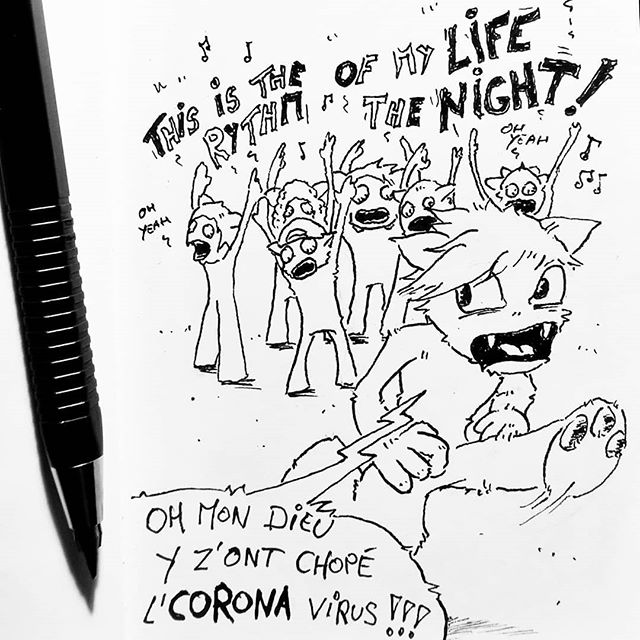 THIS IS THE OF MY LIFE
RYTHM THE NIGHT!
OH
YEAH
OH
YEAH
OH MON DIEU
Y Z'ONT CHOPÉ
L'CORONA VIRUS !!!